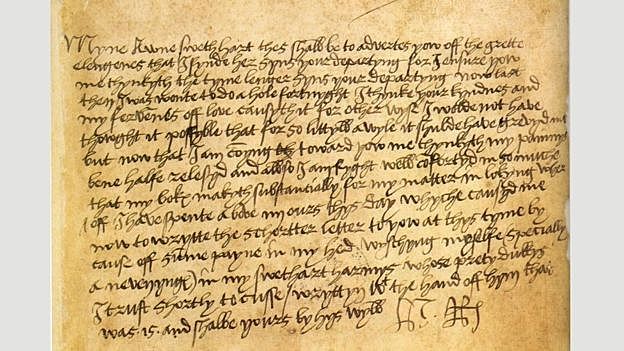 Myne Awne swethart thes shalbe to advertes yow off the grette
elengenes that I fynde her syns your departing for I ensure yow
me thynkyth the tyme lenger syns your departing now last
then I was wonte to do a hole fortnyght I thinke your kyndnes and
my fervenes off love causyth it for other wyse I wolde not have
thowght it possyble that for so littyll a wyle it shulde have grevyd me
but now that I am comyng toward yow me thynkyth my painnys
bene halfe relesyd and allso I am ryght well confortyd in so muche
that my boke makyth substancially for my matter in lokyng wher
off I have spente a bove ours thys day whyche causyd me
now to wrytte the schortter letter to yow at thys tyme by
cause off summe payne in my hed wischyng my selfe (specially
a nevenynge) in my swethart harmys whose prety dukkys
I trust shortly to cusse / wryttyn w<sup>t</sup> the hand off hym that
was. is. and shalbe yours by hys wyll H. Rx